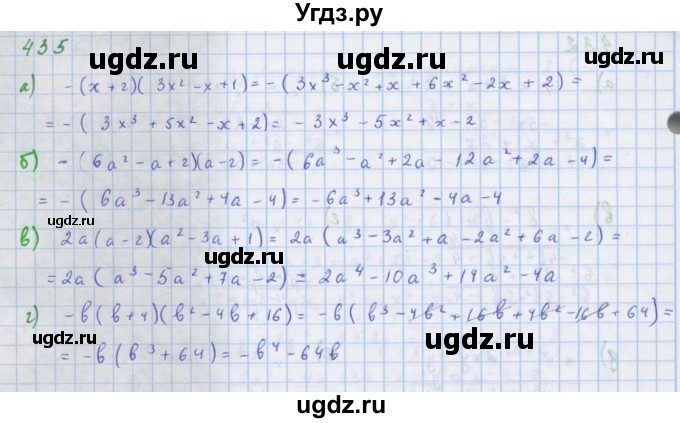 Угдз.ру
435
ugdz.ru ugdz.ru
а) -(x+2)(3x²-x+1)=-(3x³-x²+x+6x²-2x+2)=
=-(3x³+5x²-x+2)=-3x³-5x²+x-2
ugdz.ru ugdz.ru
б) -(6a²-a+2)(a-2)=-(6a³-a²+2a-12a²+2a-4)=
=-(6a³-13a²+4a-4)=-6a³+13a²-4a-4
ugdz.ru ugdz.ru
в) 2a(a-2)(a²-3a+1)=2a(a³-3a²+a-2a²+6a-2)=
=2a(a³-5a²+7a-2)=2a⁴-10a³+14a²-4a
ugdz.ru
г) -в(в+4)(в²-4в+16)=-в(в³-4в²+16в+4в²-16в+64)=
=-в(в³+64)=-в⁴-64в
ugdz.ru
ugdz.ru